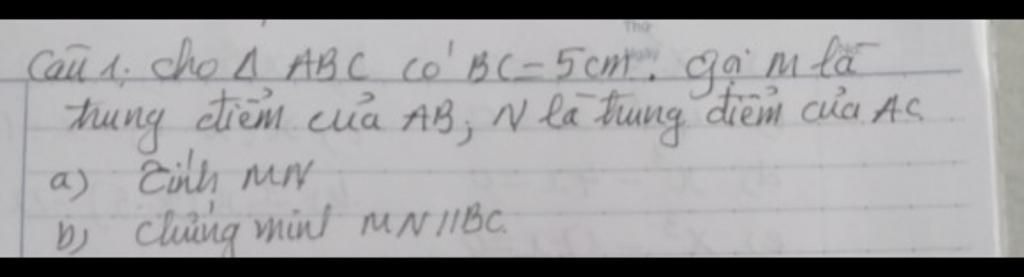 Câu 1: cho Δ ABC có BC = 5cm. gọi M là
trung điểm của AB, N là trung điểm của AC
a) Tính MN
b) chứng minh MN // BC.